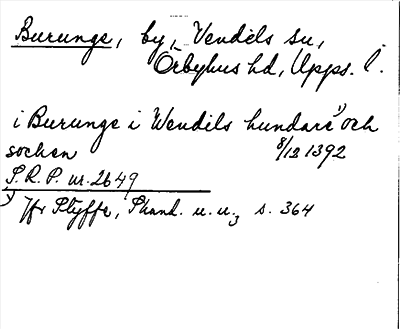 Burunge, by, Vendels sn,
Örbyhus hd, Upps. l.
i Burunge i Wendils hundare¹⁾ och
sochen 8/12 1392
P. R. P. nr. 2649
¹⁾ Jfr Styffe, Skand. u. u., s. 364